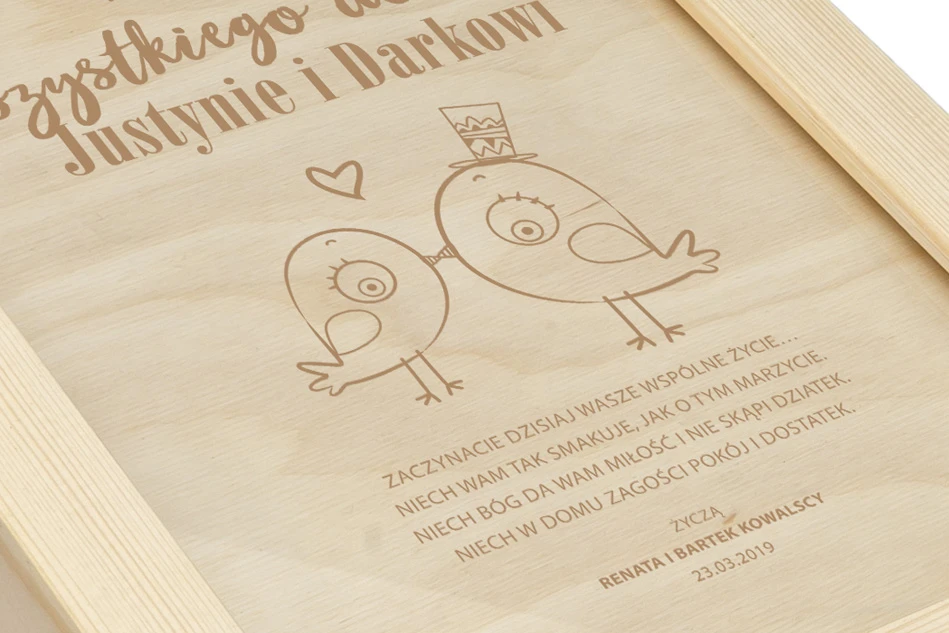 Justynie i Darkowi
ZACZYNACIE DZISIAJ WASZE WSPÓLNE ŻYCIE...
NIECH WAM TAK SMAKUJE, JAK O TYM MARZYCIE.
NIECH BÓG DA WAM MIŁOŚĆ I NIE SKĄPI DZIATEK.
NIECH W DOMU ZAGOŚCI POKÓJ I DOSTATEK.
ŻYCZĄ
RENATA I BARTEK KOWALSCY
23.03.2019